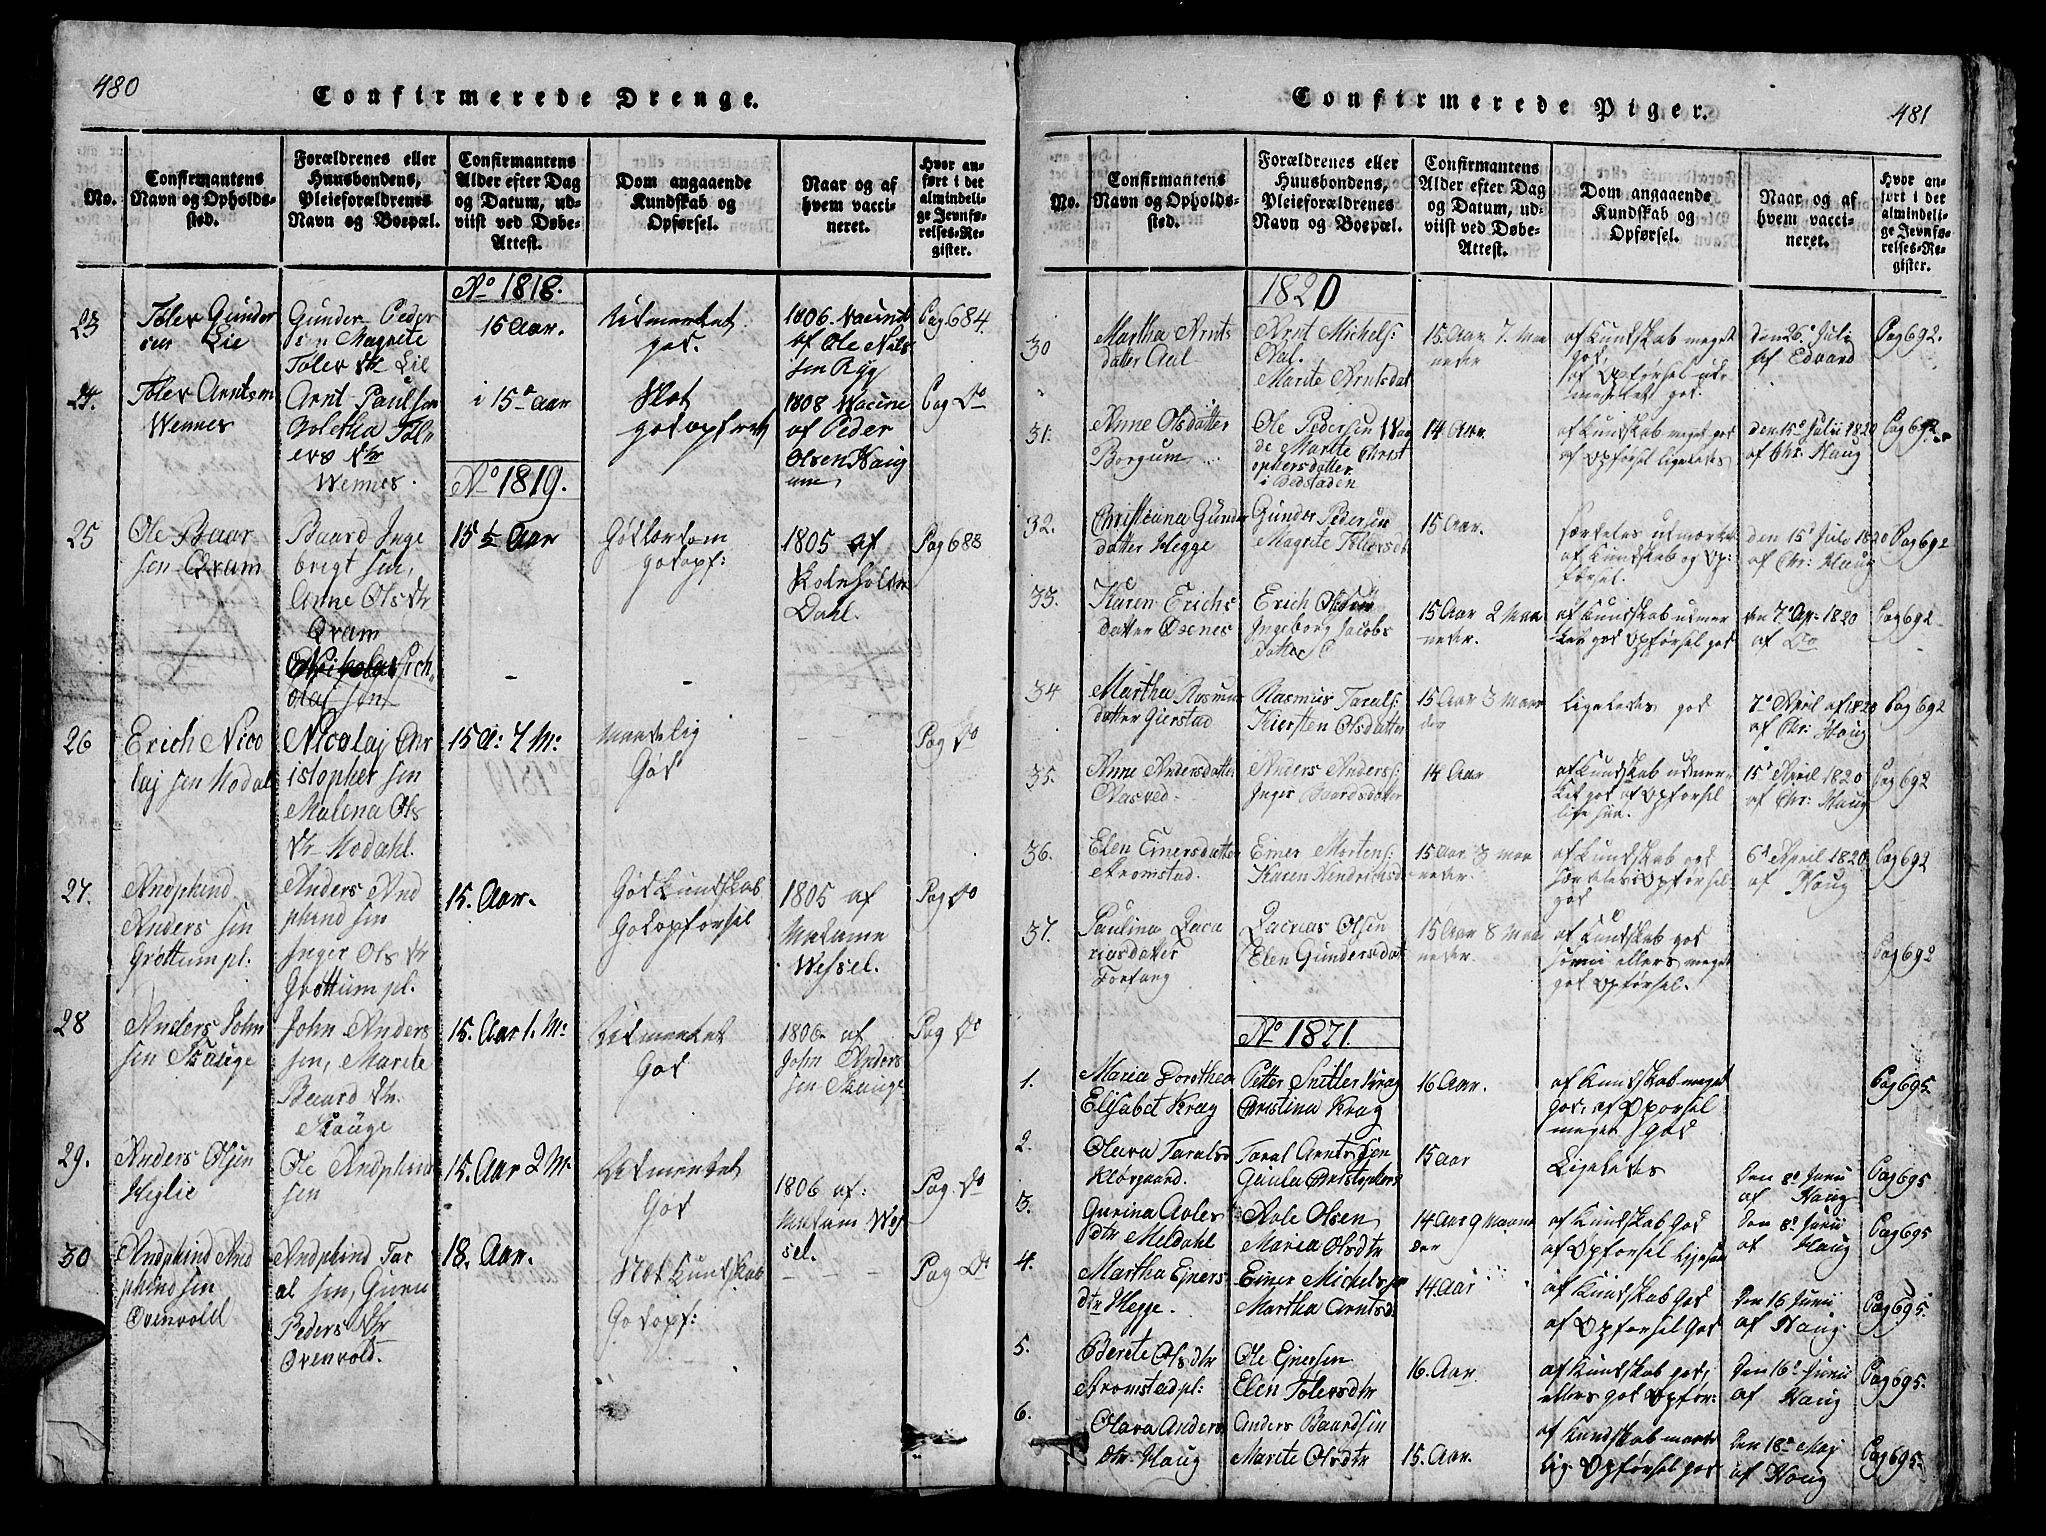 480
Confirmerede Drenge.
No.
Confirmantens
Navn og Opholds-
sted.
Forældrenes eller
Huusbondens,
Pleieforældrenes
Navn og Boepæl.
Confirmantens
Alder efter Dag
og Datum, ud-
viist ved Døbe-
Attest.
Dom angaaende
Kundskab og
Opførsel.
Naar og af
hvem vacci-
neret.
Hvor an-
ført i det
almindeli-
ge Jevnfø-
relses-Re-
gister.
No 1818.
23
Tolev Gunder
sen Lie
Gunder Peder
sen Magnete
Tolev Dtr Lie
15 Aar.
god.
1806
af Ole Nils
sen Rygg
Pag 684.
24.
Tolev Arntsen
Wennes
Arnt Paulsen
Goletha Tol
ers Dtr
Wennes.
i 15de Aar
1808
af Peder
Olsen Haug
Pag Do
No 1819.
25
Ole Baar
sen Qvam
Baard Inge
brigt sen,
Anne Ols Dtr
Qvam
15 ½ Aar
god opf:
1805 af
Dahl.
Pag 688
26
Erich Nico
laj sen Modal
Nicolaj Chr
istopher sen
Malena Ols
Dtr Modahl.
15 A: 4 M:
Maadelig
God
Pag Do
27.
Andphind
Anders sen
Grøttum pl.
Anders And
phind sen
Inger Ols Dtr
Grøttum pl.
15. Aar.
God Kundskab
God opførsel
1805 af
Madame
Wessel.
Pag Do
28
Anders John
sen Skauge
John Anders
sen, Marite
Baard Dtr.
Skauge
15. Aar 1. M:
Udmærket
God
1806 af
John Anders
sen Skauge
Pag Do
29.
Anders Olsen
Heglie
Ole Andphind
sen
15. Aar 2 M.
Udmærket
God
1806 af:
Madam Wes
sel.
Pag Do
30
Andphind And
phind sen
Ovenvold
Andphind Tar
al sen, Guru
Peders Dtr
Ovenvold.
18. Aar.
Slet Kundskab
God opf:
Pag Do
Confirmerede Piger.
481
No.
Confirmantens
Navn og Opholds-
sted.
Forældrenes eller
Huusbondens,
Pleieforældrenes
Navn og Boepæl.
Confirmantens
Alder efter Dag
og Datum, ud-
viist ved Døbe-
Attest.
Dom angaaende
Kundskab og
Opførsel.
Naar og af
hvem vacci-
neret.
Hvor an-
ført i det
almindeli-
ge Jevnfø-
relses-Re-
gister.
1820
30
Martha Arnts
datter Aal
Arnt Michels:
Aal.
Marite Arntsdat
15 Aar 7. Maa
neder
af Kundskab meget
god
af Opførsel ud-
mærket god.
den 26. Juli
af Edvard
Pag 692.
31.
Anne Olsdatter
Borgum
Ole Pedersen
de Marite Christ
ophersdatter
i Bedstaden
14 Aar.
af Kundskab meget god
af Opførsel ligeledes
den 15d Julii 1820
af Chr. Haug
Pag 692
32.
Christiana Gunder
datter Hegge
Gunder Pedersen
Magrite Tolersd:
15 Aar.
særdeles udmærket
af Kundskab og Op:
førsel.
den 15d Juli 1820
af Chr: Haug
Pag 692
33.
Karen Erichs
datter Oxenes
Erich Olsen
Ingeborg Jacobs
datter
15 Aar 2 Maa
neder.
af Kundskab udmær
ket god Opførsel god
den 7d Ap. 1820
af Do
Pag 692
34
Martha Rasmus
datter Gierstad
Rasmus Taralss:
Kiersten Olsdatter
15 Aar 3 Maan
der
ligeledes god
7d April 1820
af Chr: Haug
Pag 692
35.
Anne Andersdatter
Aasved.
Anders Anderss:
Inger Baardsdatter
14 Aar
af Kundskab udmær-
ket god af Opførsel
ligesaa.
15d April 1820
af Chr: Haug
Pag 692
36.
Elen Einersdatter
Strømstad.
Einer Mortens:
Karen Hendrichsd
15 Aar 3 Maa
neder.
af Kundskab god
særdeles Opførsel
god
6d April 1820
af Haug
Pag 692
37.
Paulina Zaca
riasdatter
Forfang
Zacrias Olsen
Elen Gundersdat
15 Aar 8 Maa
neder.
af Kundskab god
ellers meget
god Opførsel.
Pag 692
No 1821.
1.
Maria Dorothea
Elisabet Krag
Petter Snitler Krag
Christina Krag
16 Aar.
af Kundskab meget
god, af Oporsel
meget god
Pag 695
2.
Olava Taralsd
Klørgaard.
Taral Arntssen
Gaula Christophers
15 Aar
Ligeledes
Den 8d Junii
af Haug
Pag 695
3.
Gurina Aoles
dtr Meldahl
Aole Olsen
Maria Olsdtr
14 Aar 9 Maane
der
af Kundskab God
af Opførsel Ligesaa
Den 8d Junii
af Haug
Pag 695
4.
Martha Ejners
dtr Hegge.
Einer Michelssen
Martha Arntsd:
14 Aar
af Kundskab God
af Opførsel God
Den 16 Junii
af Haug.
Pag 695.
5.
Berete Olsdtr
Strømstad pl:
Ole Ejnersen
Elen Tolersdtr
16. Aar
af Kundskab god,
ellers god Opfør:
Den 16d Junii
af Haug
Pag 695.
6.
Olava Anders
dtr. Haug
Anders Baardsen
Marite Olsdtr
15. Aar.
af Kundskab maade
lig. Opførsel god
Den 18d Maj
af Haug
Pag 695.